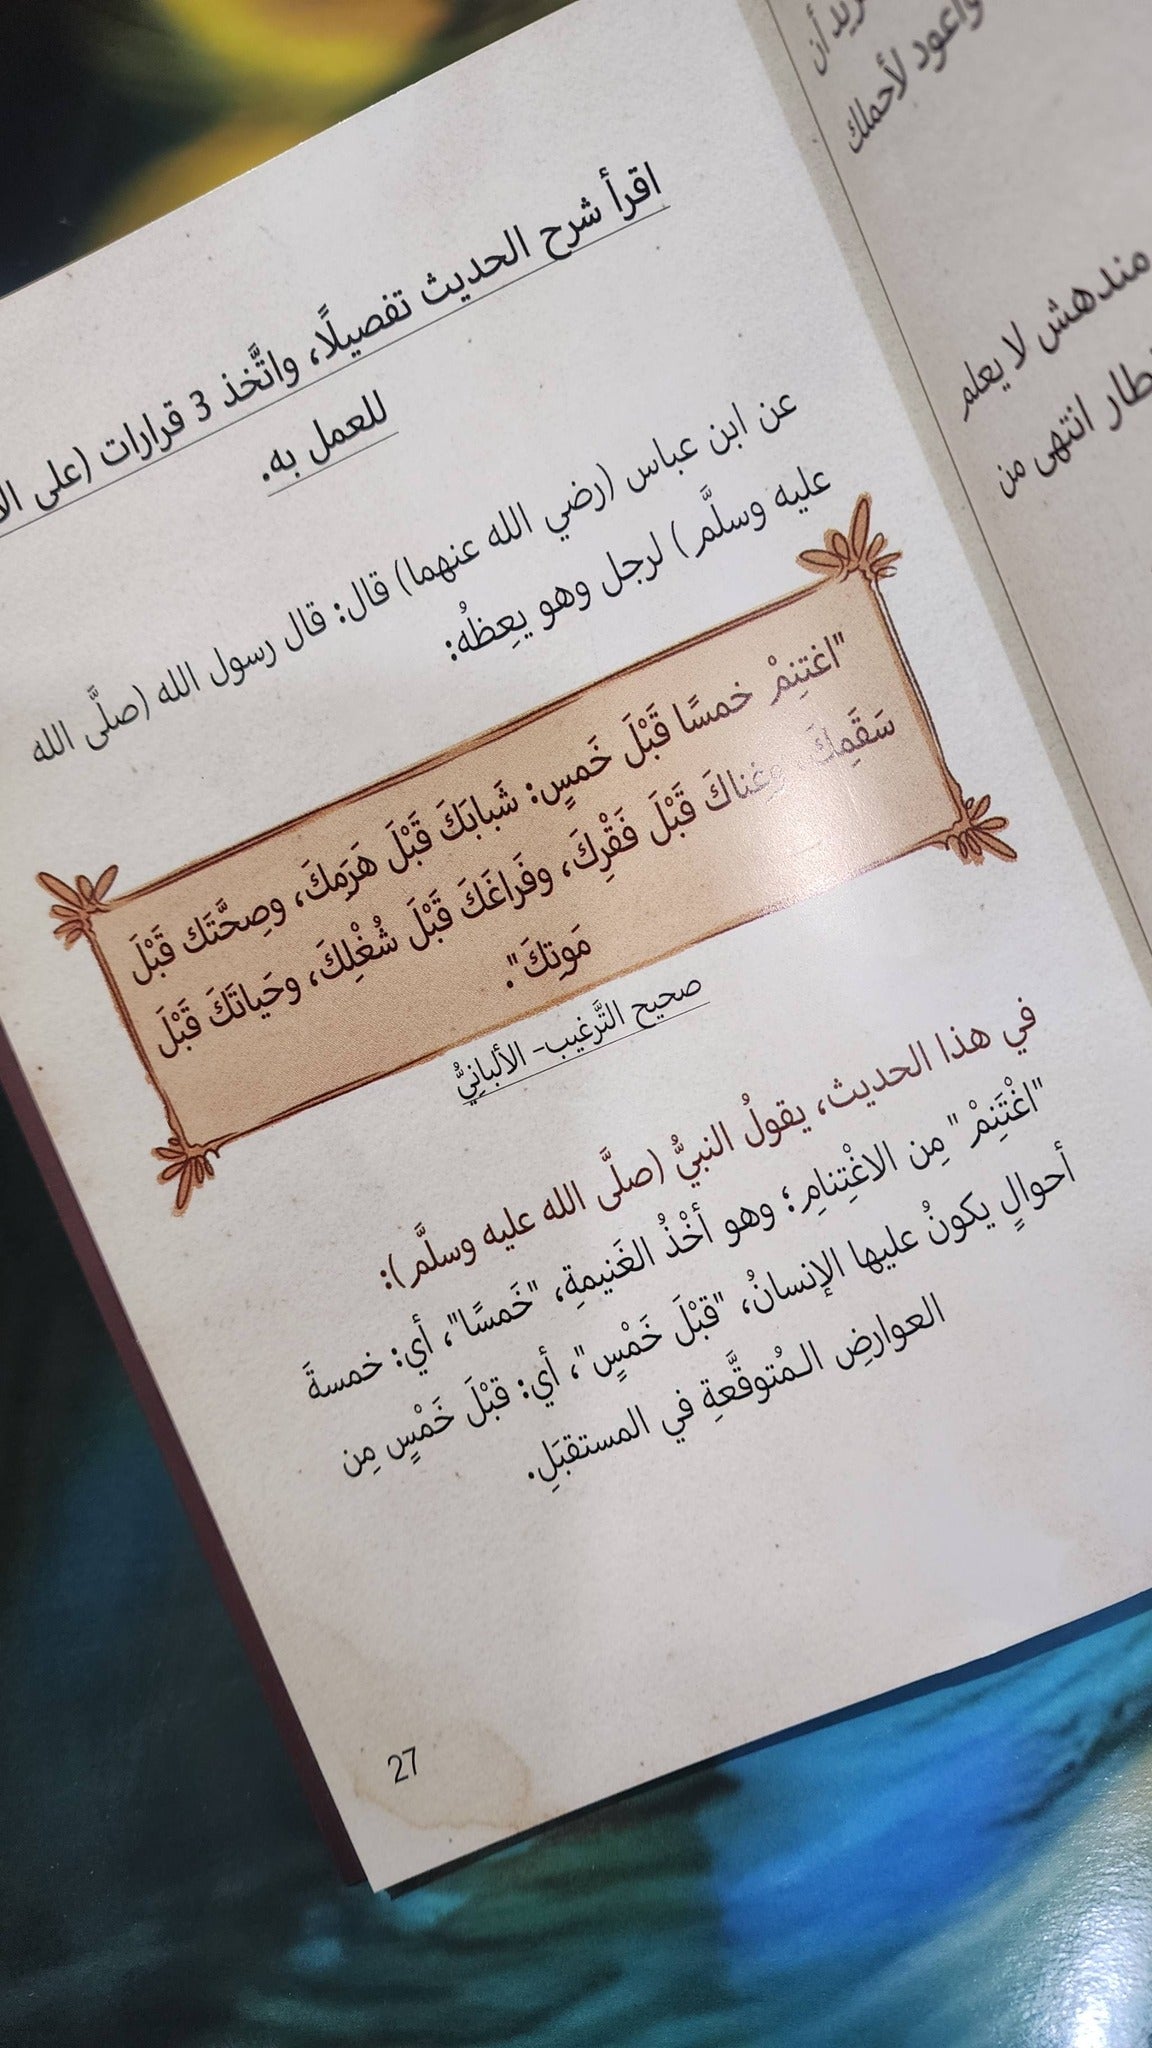 اقرأ شرح الحديث تفصيلًا، واتَّخذ 3 قرارات (على
للعمل به.
عن ابن عباس (رضي الله عنهما) قال: قال رسول الله (صلَّى الله
عليه وسلَّم) لرجل وهو يعِظُه:
"اغتَنِمْ خمسًا قَبْلَ خَمسٍ: شَبابَكَ قَبْلَ هَرَمِكَ، وصِحَّتَك قَبْلَ
سَقَمِكَ، وغِناكَ قَبْلَ فَقْرِكَ، وفَراغَكَ قَبْلَ شُغْلِكَ، وحَياتَكَ قَبْلَ
مَوتِكَ".
صحيح التَّرغيب- الألبانِيُّ
في هذا الحديث، يقولُ النبيُّ (صلَّى الله عليه وسلَّم):
"اغْتَنِمْ" مِن الاغْتِنامِ؛ وهو أَخْذُ الغَنيمةِ، "خَمسًا"، أي: خمسةَ
أحوالٍ يكونُ عليها الإنسانُ، "قبْلَ خَمْسٍ"، أي: قبْلَ خَمْسٍ مِن
العوارضِ المُتوقَّعةِ في المستقبَلِ.
27
أن
وأعود لأحملك
مندهش لا يعلم
انتهى من